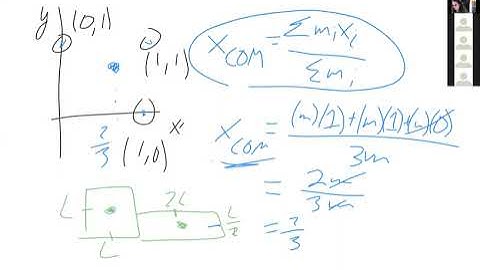 y (0,1)
(1,1)
x
2/3 (1,0)
X_COM = Σm_i x_i / Σm_i
X_COM = (m)(1)+(m)(1)+(m)(0) / 3m
= 2m / 3m
= 2/3
L 2L L/2
L